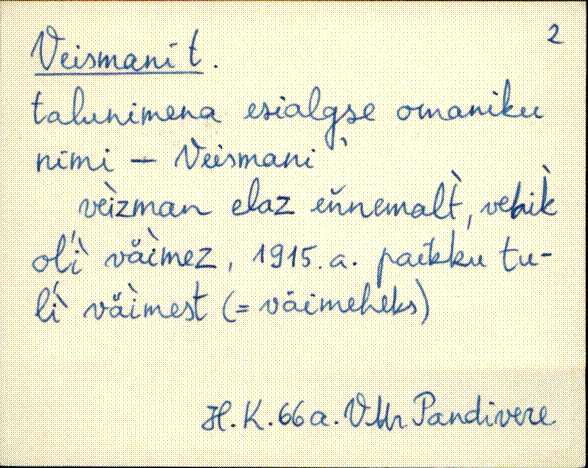 2
Veismani t.
talunimena esialgse omaniku
nimi — Vèismani
vèizman elaz eǹnemalt̀, vehik̀
oĺì vä̀imez, 1915. a. paikku tu-
ĺì vä̀imest (= väimeheks)
H. K. 66 a. VMr Pandivere